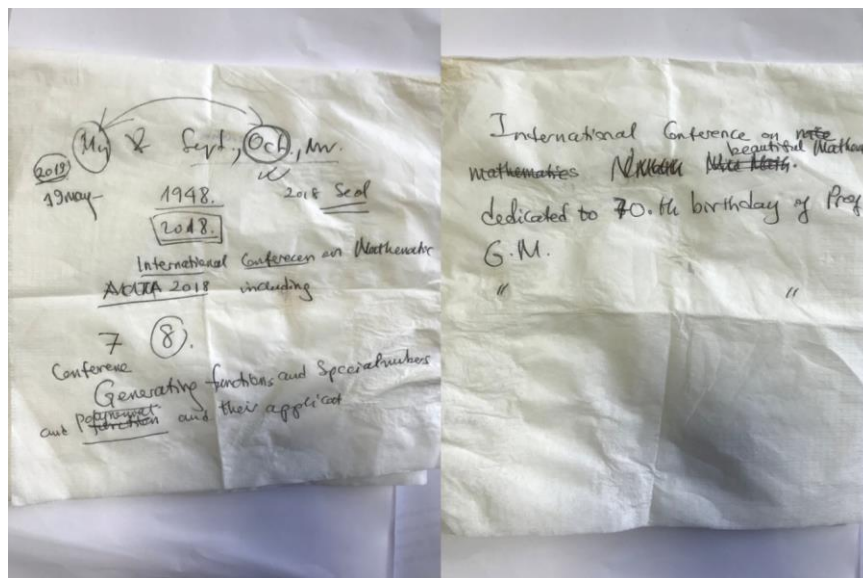 May & Sept., Oct., Nov.
2018
19 may - 1948. 2018 Seal
2018.
International Conferecen on Mathematic
2018 including
7 8.
Conference
Generating functions and Special numbers
and Polynomial function and their applicat
International Conference on note
beautiful Mathem
mathematics
dedicated to 70.th birthday of Prof
G.M.
" "